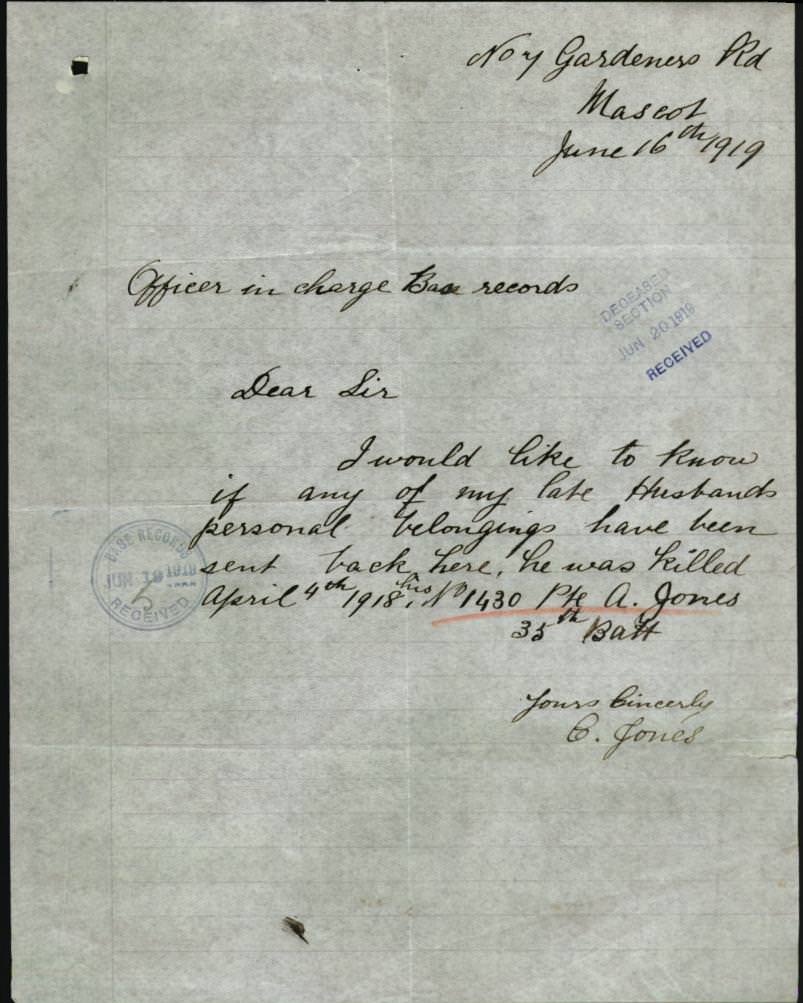 No 7 Gardeners Rd
Mascot
June 16th 1919
Officer in charge Base records
DECEASED
SECTION
JUN 20 1919
RECEIVED
Dear Sir
I would like to know
if any of my late Husbands
personal belongings have been
sent back here, he was killed
April 4th 1918, his No 1430 Pte A. Jones
35th Batt
BASE RECORDS
RECEIVED
Yours Sincerly
C. Jones